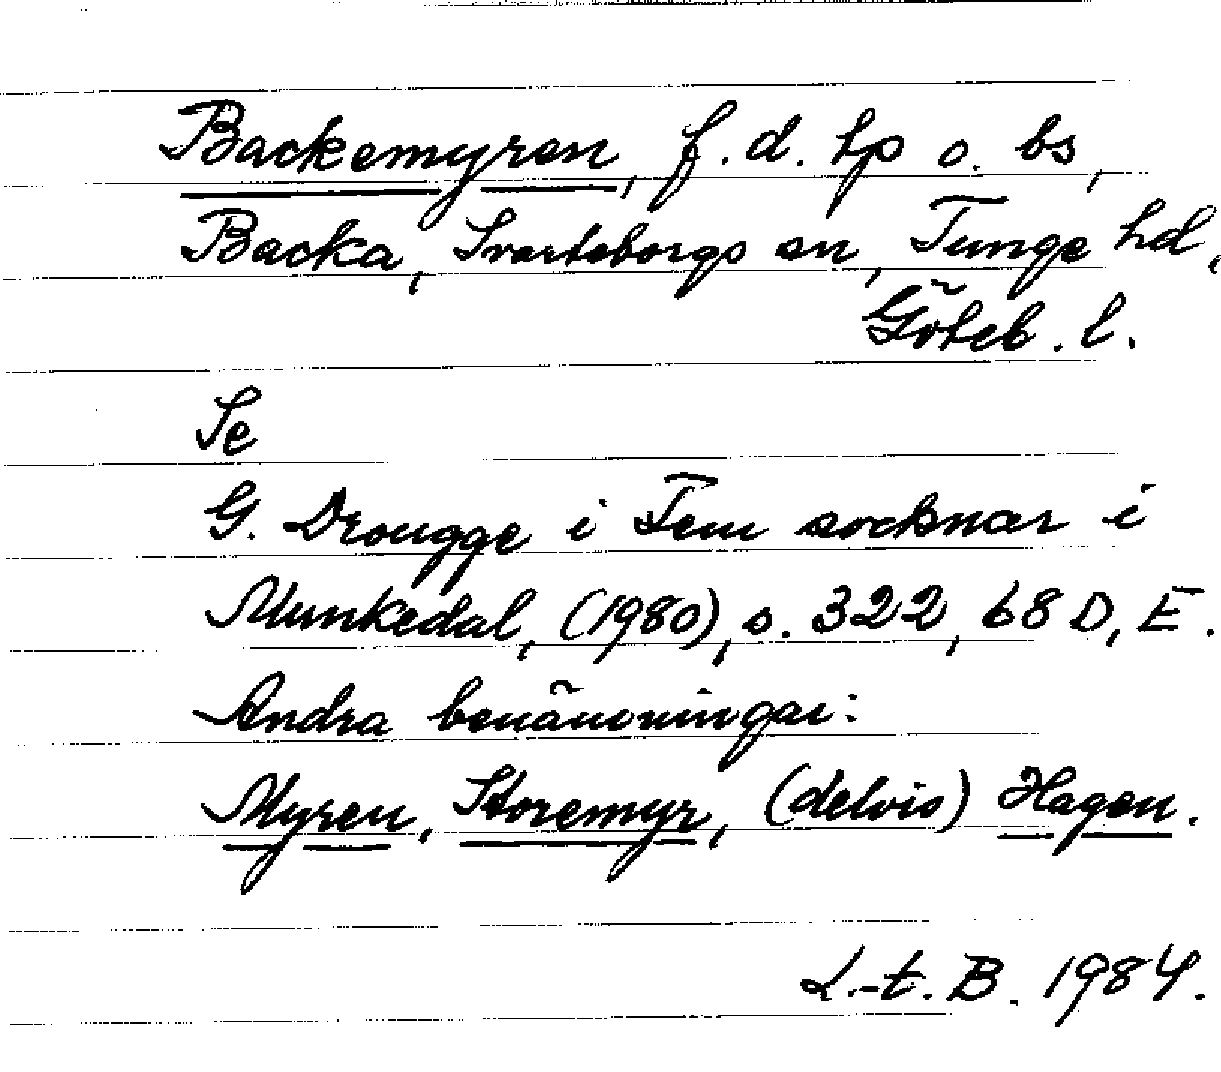 Backemyren, f.d. tp o. bs,
Backa, Svarteborgs sn, Tunge hd,
Göteb. l.
Se
G. Drougge i Fem socknar i
Munkedal, (1980), s. 322, 68 D, E.
Andra benämningar:
Myren, Storemyr, (delvis) Hagen.
L.-t. B. 1984.